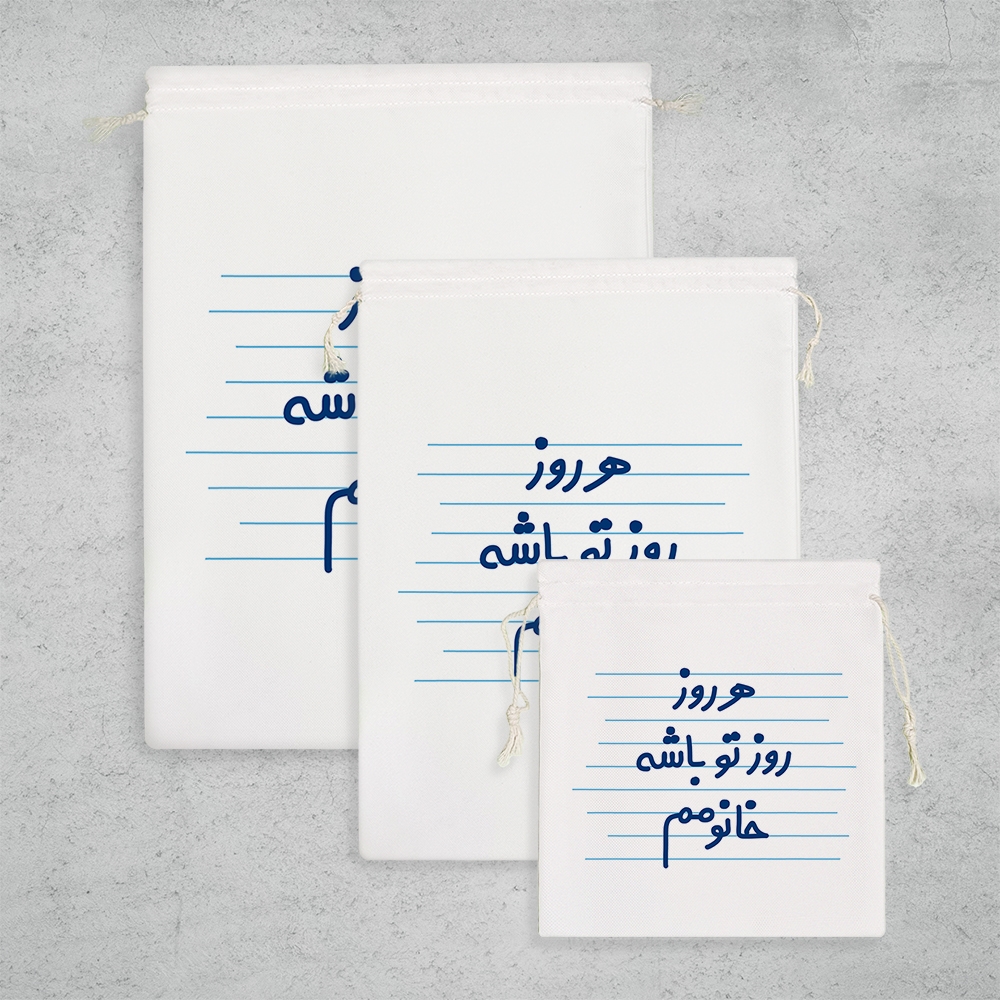 هر روز
روز تو باشه
هر روز
روز تو باشه
خانومم